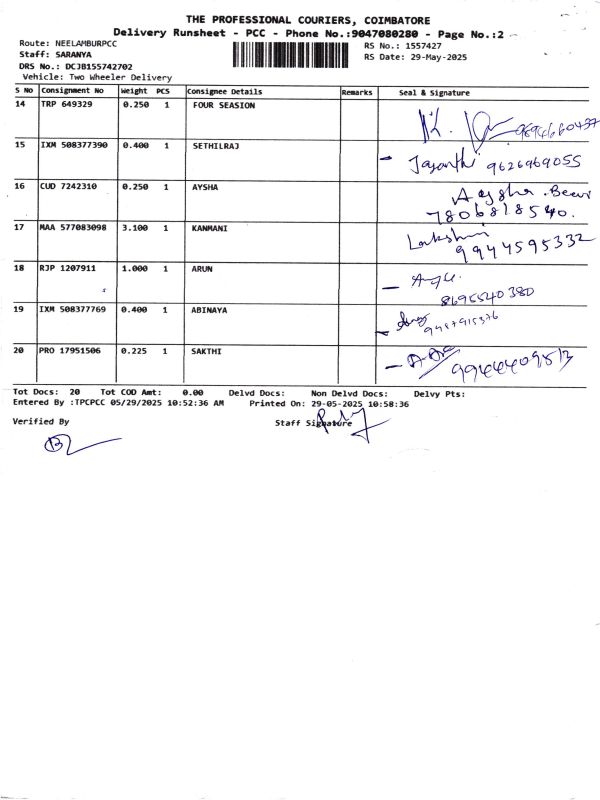 THE PROFESSIONAL COURIERS, COIMBATORE
Delivery Runsheet - PCC - Phone No.:9047080280 - Page No.:2
Route: NEELAMBURPCC
Staff: SARANYA
DRS No.: DCJB155742702
Vehicle: Two Wheeler Delivery
RS No.: 1557427
RS Date: 29-May-2025
S No Consignment No Weight PCS Consignee Details Remarks Seal & Signature
14 TRP 649329 0.250 1 FOUR SEASION
15 IXM 508377390 0.400 1 SETHILRAJ Jayanthi 9626969055
16 CUD 7242310 0.250 1 AYSHA Aysha
7806818540.
17 MAA 577083098 3.100 1 KANMANI Lakshmi
9944595332
18 RJP 1207911 1.000 1 ARUN
8695540380
19 IXM 508377769 0.400 1 ABINAYA
20 PRO 17951506 0.225 1 SAKTHI
Tot Docs: 20 Tot COD Amt: 0.00 Delvd Docs: Non Delvd Docs: Delvy Pts:
Entered By :TPCPCC 05/29/2025 10:52:36 AM Printed On: 29-05-2025 10:58:36
Verified By Staff Signature